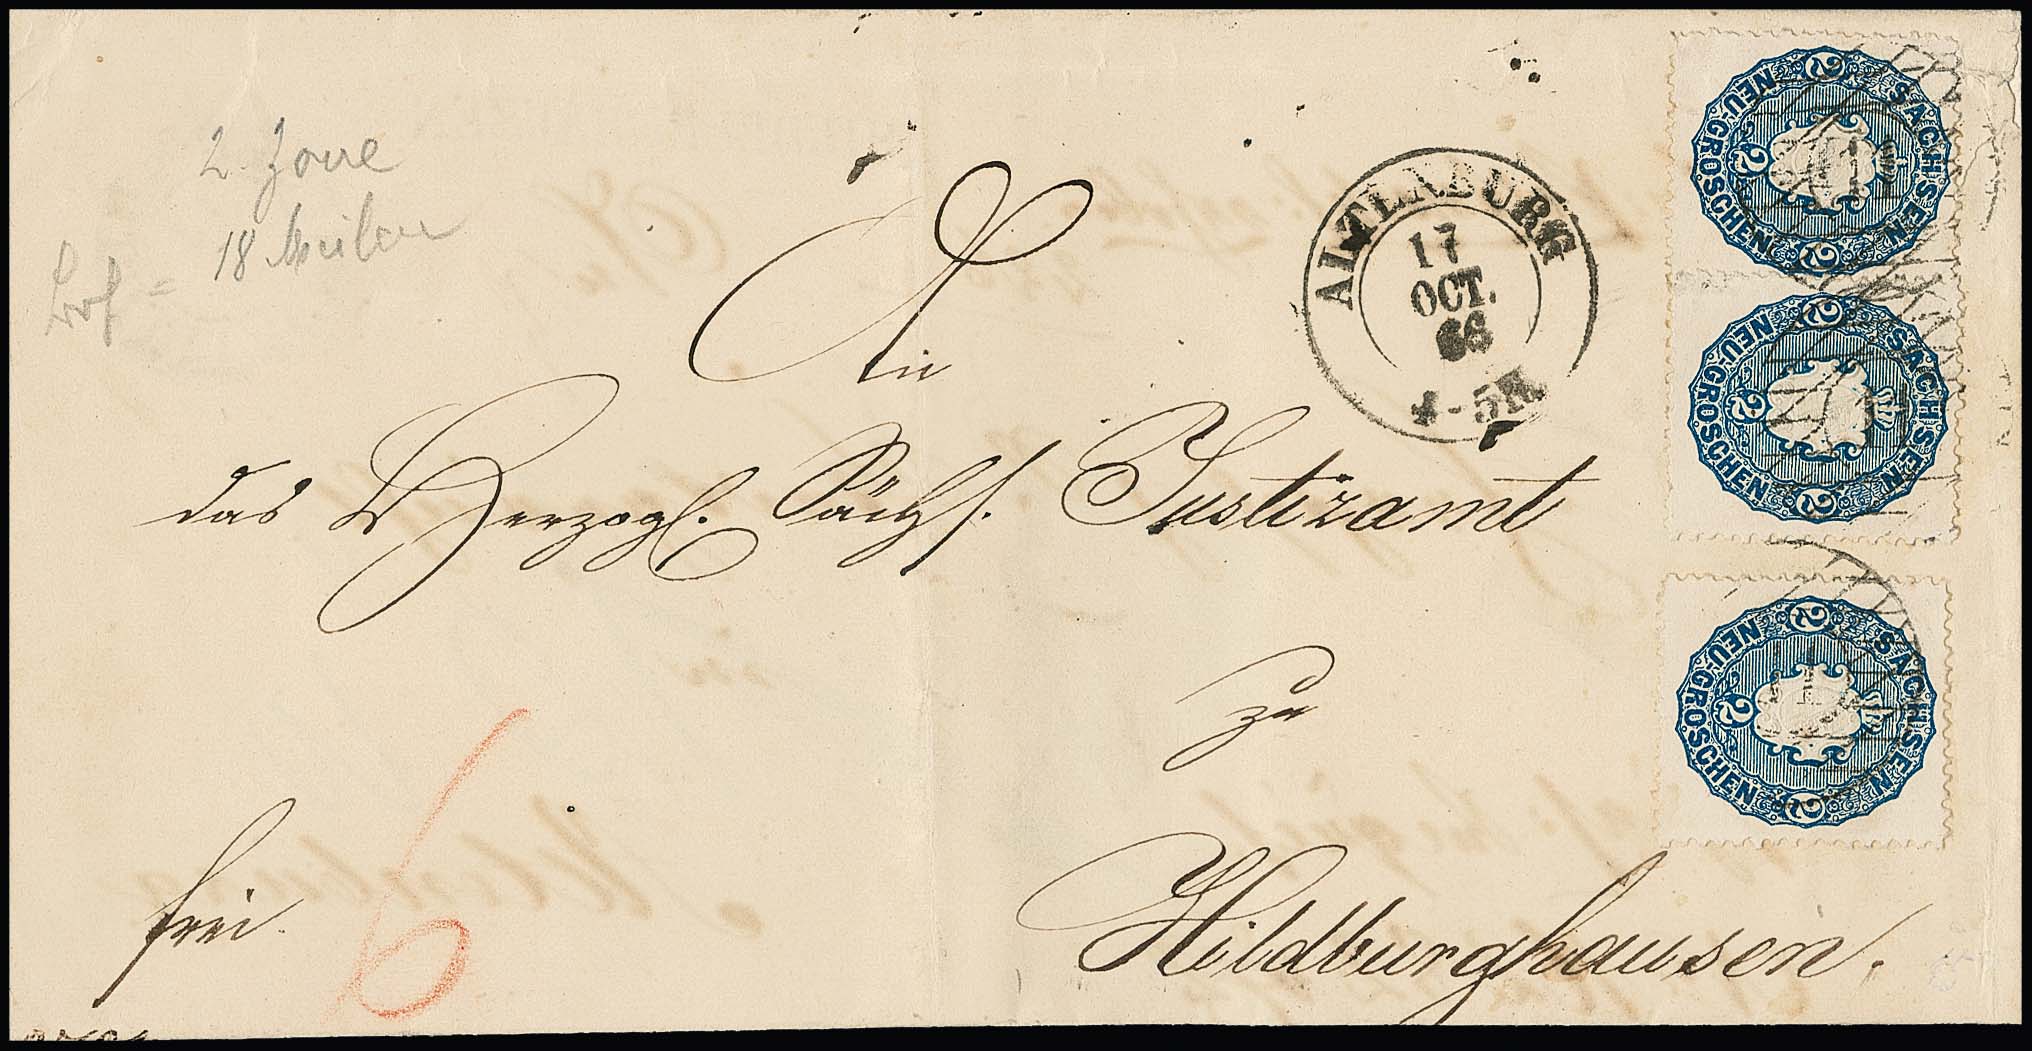 2. Zone
18 Meilen
An
das Herzogl. Sächs. Justizamt
zu
Hildburghausen.
frei.
6
ALTENBURG
17
OCT.
66
4-5N.
SACHSEN
NEU-GROSCHEN
2 2 2
SACHSEN
NEU-GROSCHEN
2 2 2
SACHSEN
NEU-GROSCHEN
2 2 2